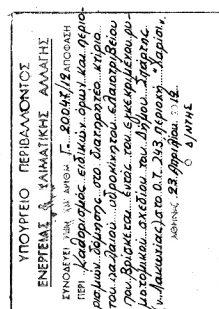 ΥΠΟΥΡΓΕΙΟ ΠΕΡΙΒΑΛΛΟΝΤΟΣ
ΕΝΕΡΓΕΙΑΣ & ΚΛΙΜΑΤΙΚΗΣ ΑΛΛΑΓΗΣ
ΣΥΝΟΔΕΥΕΙ ΑΡΙΘΜ. 20047/12 ΑΠΟΦΑΣΗ
ΠΕΡΙ Καθορισμός ειδικών όρων και περιο-
ρισμών δόμησης στο διατηρητέο κτίριο
του παλαιού υδροκίνητου ελαιοτριβείου
που βρίσκεται εντός του εγκεκριμένου ρυ-
μοτομικού σχεδίου του Δήμου Σπάρτης
ν. Λακωνίας) στο Ο.Τ. 293, περιοχή
ΑΘΗΝΑ, 23 Απριλίου 2012
Ο Δ/ΝΤΗΣ